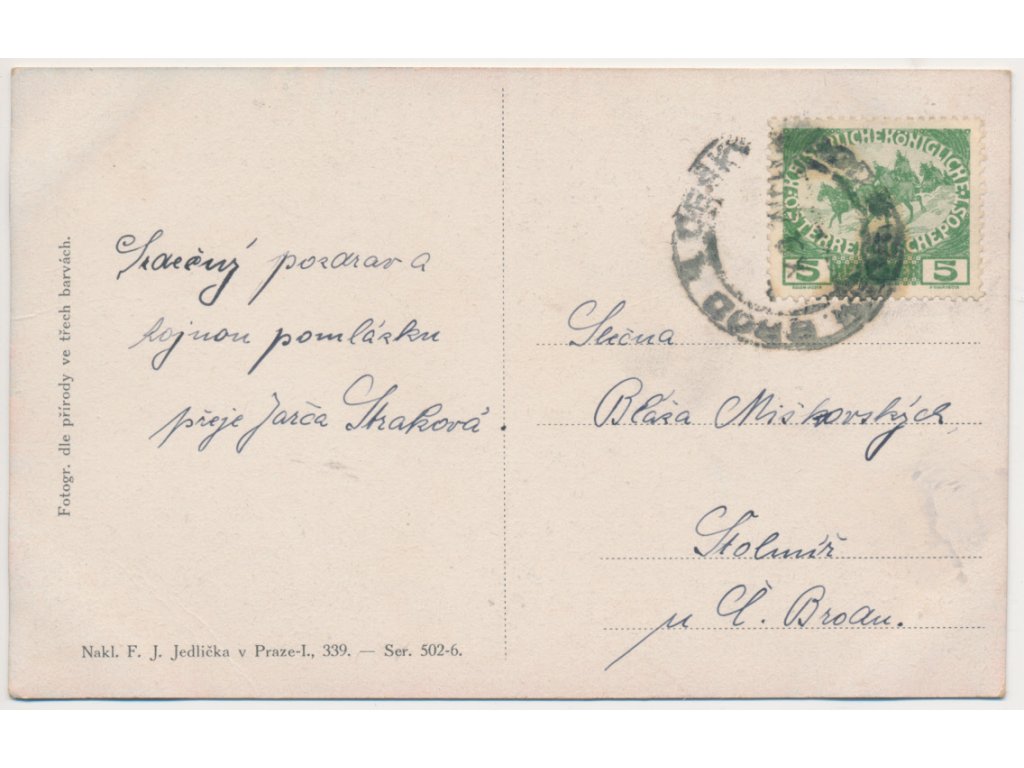 Fotogr. dle přírody ve třech barvách.
Srdečný pozdrav a
hojnou pomlázku
přeje Jarča Straková.
Nakl. F. J. Jedlička v Praze-I., 339. — Ser. 502-6.
KAISERLICHE KÖNIGLICHE
ÖSTERREICHISCHE POST
5 5
BROD
Slečna
Bláža Miškovských
Stolmíř
u Č. Brodu.